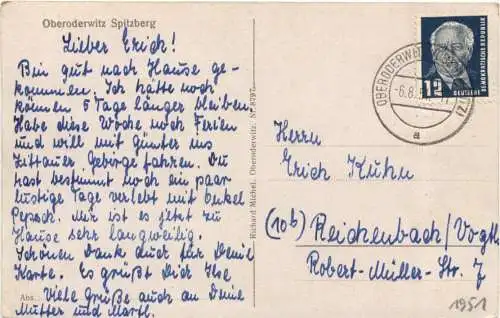 Oberoderwitz Spitzberg
Lieber Erich!
Bin gut nach Hause ge-
kommen. Ich hätte noch
können 5 Tage länger bleiben.
Habe diese Woche noch Ferien
und will mit Günter ins
Zittauer Gebirge fahren. Du
hast bestimmt noch ein paar
lustige Tage verlebt mit Onkel
Pepsch. Mir ist es jetzt zu
Hause sehr langweilig.
Schönen Dank auch für Deine
Karte. Es grüßt Dich Ilse
Abs.
Viele Grüße auch an Deine
Mutter und Martl.
Richard Michel, Oberoderwitz. Nr.
12
DEUTSCHE
DEMOKRATISCHE REPUBLIK
OBERODERWITZ
-6.8.
a
Herrn
Erich Kuhn
(10b) Reichenbach/Vogtl
Robert-Müller-Str. 7
1951